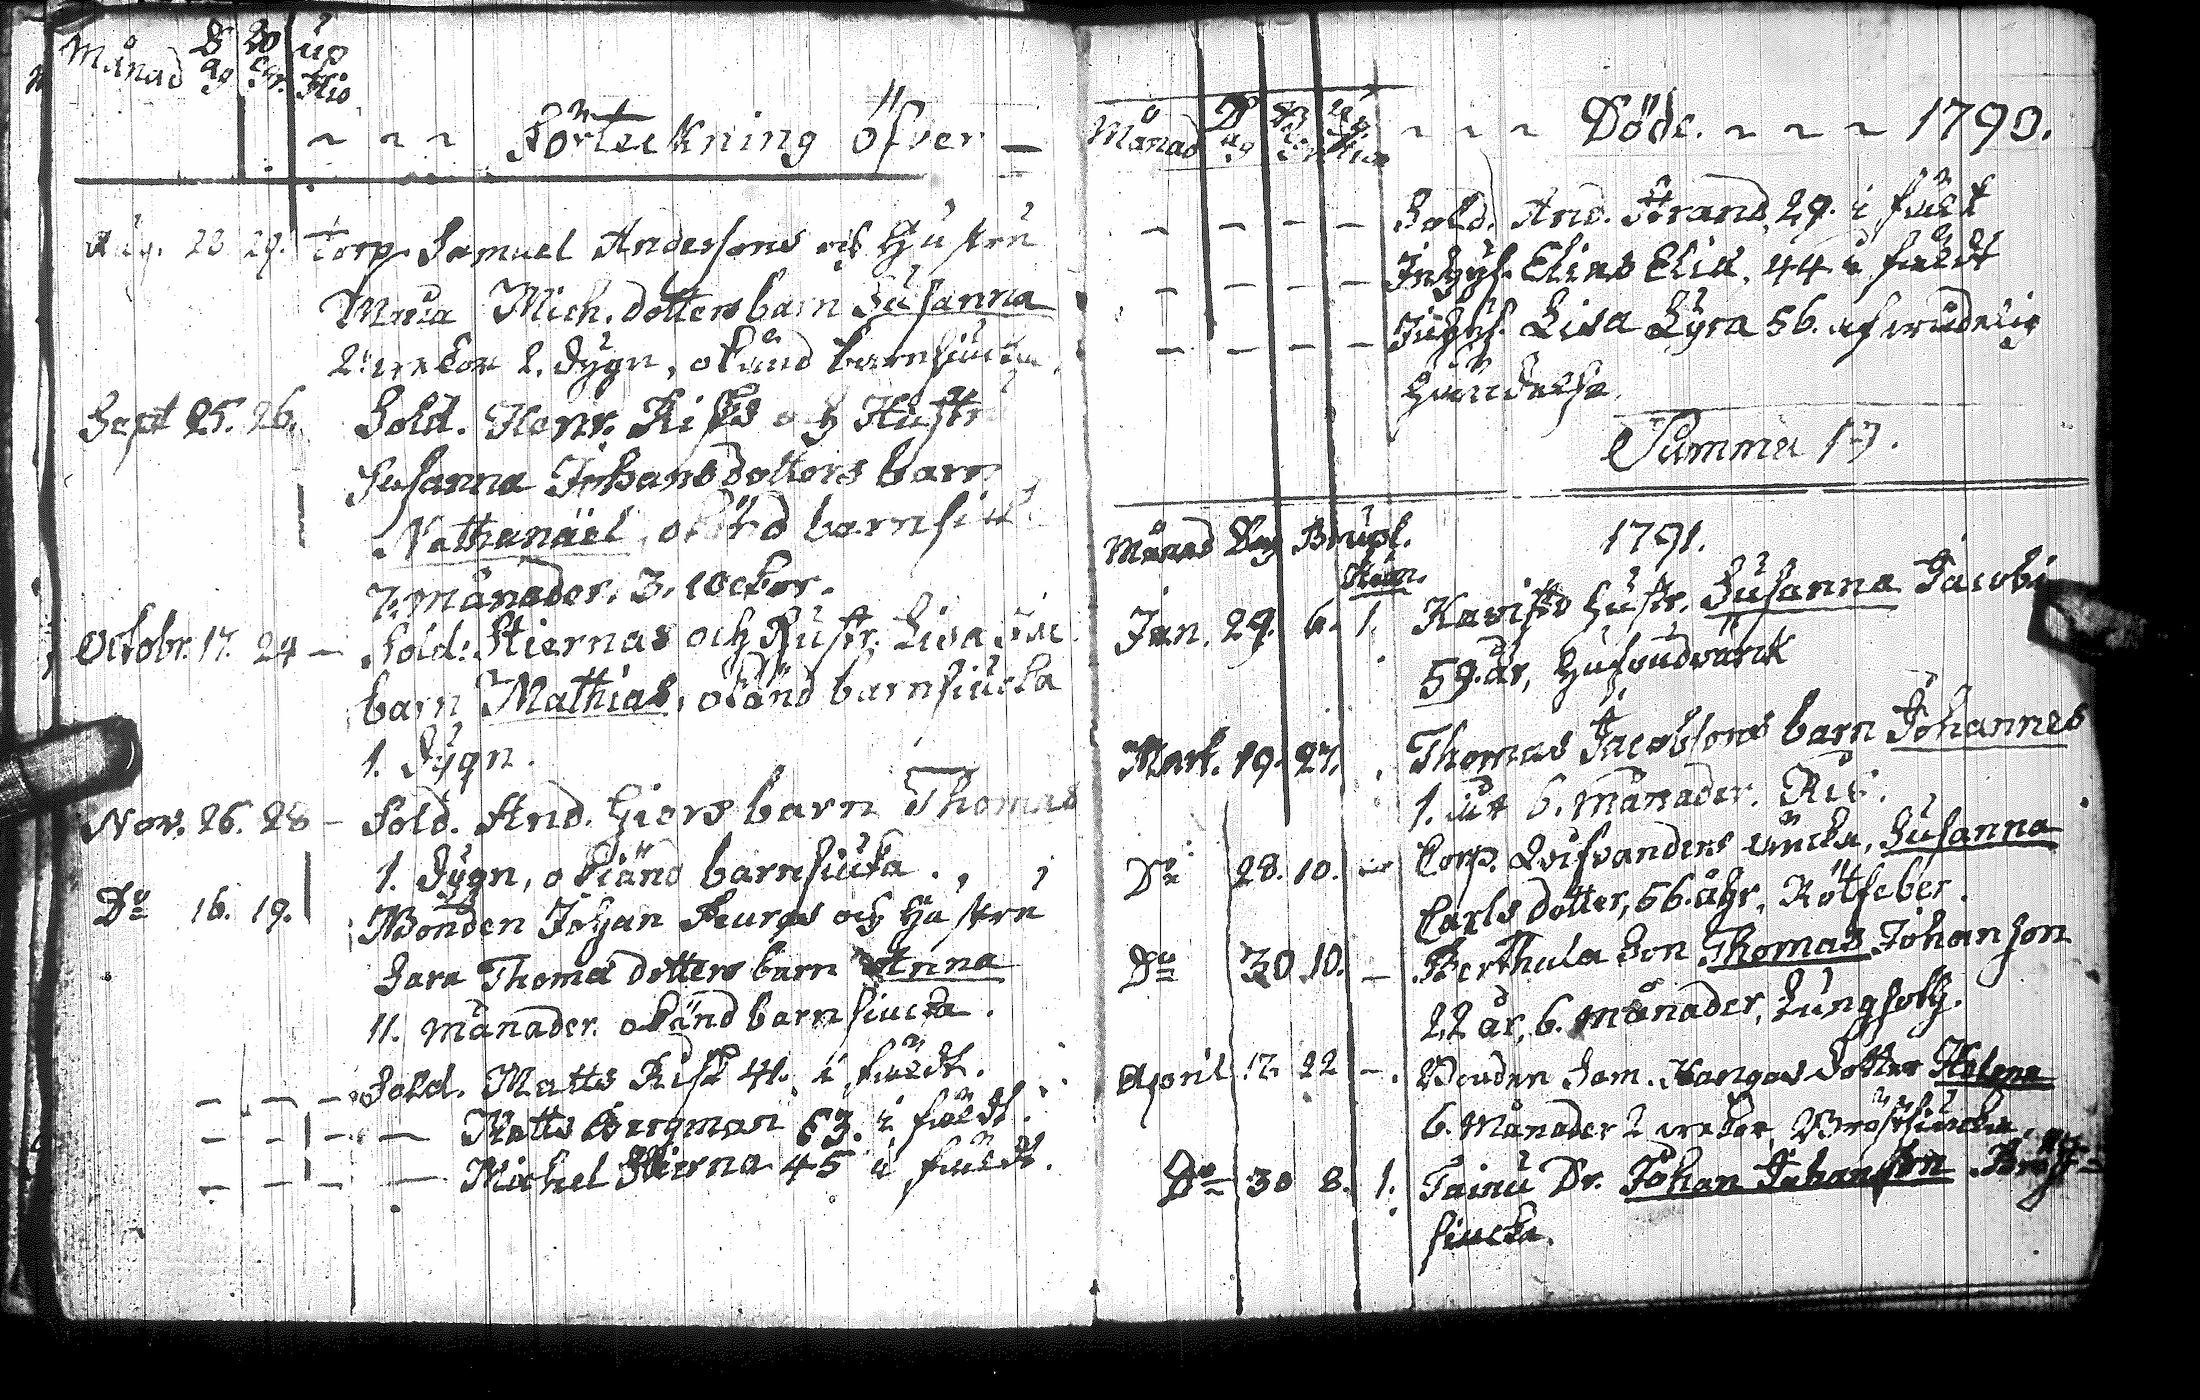 Månad Dag Begr. Up
Kiö
~ ~ ~ Förteckning öfver —
Aug. 23 29. Torp. Samuel Anderssons och Hustru
Maria Mich. dotters barn Susanna
2 wekor 2. dygn, okänd barnsiucka
Sept 25. 26. Sold. Henr. Risks och Hustr
Susanna Johansdotters barn
Nathanäel, okänd barnsiuk
7. Månader. 3. wekor.
Octobr. 17. 24 — Sold. Stiernas och Hustr. Lisa Jac
barn Mathias, okänd barnsiucka
1. dygn.
Nov. 26. 28 — Sold. And. Giers barn Thomas
1. dygn, okiänd barnsiucka.
Do 16. 19. Bonden Johan Heurgs och Hustru
Sara Thomæ dotters barn Anna
11. Månader. okänd barnsiucka.
— — — Sold. Matts Risk 41. i fäldt.
— — — — Matts Bergman 63. i fäldt.
— — — — Michel Stierna 45 i fäldt.
Månad Dag ~ ~ ~ Döde. ~ ~ ~ 1790.
— — — — Sold. And. Strand, 29. i fält
— — — — Inhys. Elias Elia. 44 i fäldt
— — — — Inhys. Lisa Lyra 56. af wådelig
händelse.
Summa 17.
Månad Dag Begr. upl. 1791.
Kiön.
Jan. 29. 6. 1. Kavists hustr. Susanna Jacobi
59. år, hufvudvärck
Mart. 19. 27. Thomas Jacobsons barn Johannes
1. år 6. månader.
Do 28. 10. — Corp. Qvifvanders encka, Susanna
Carls dotter, 56. åhr, Rötfeber.
Do 30 10. — Berthula son Thomas Johanson
22 år, 6. Månader, Lungsoth.
April 17. 22 — Bonden Sam. Kangas dotter Helena
6. Månader 2 wekor, Bröstsiucka.
Do 30 8. 1. Tainu Dr. Johan Johansson Bröst-
siucka.